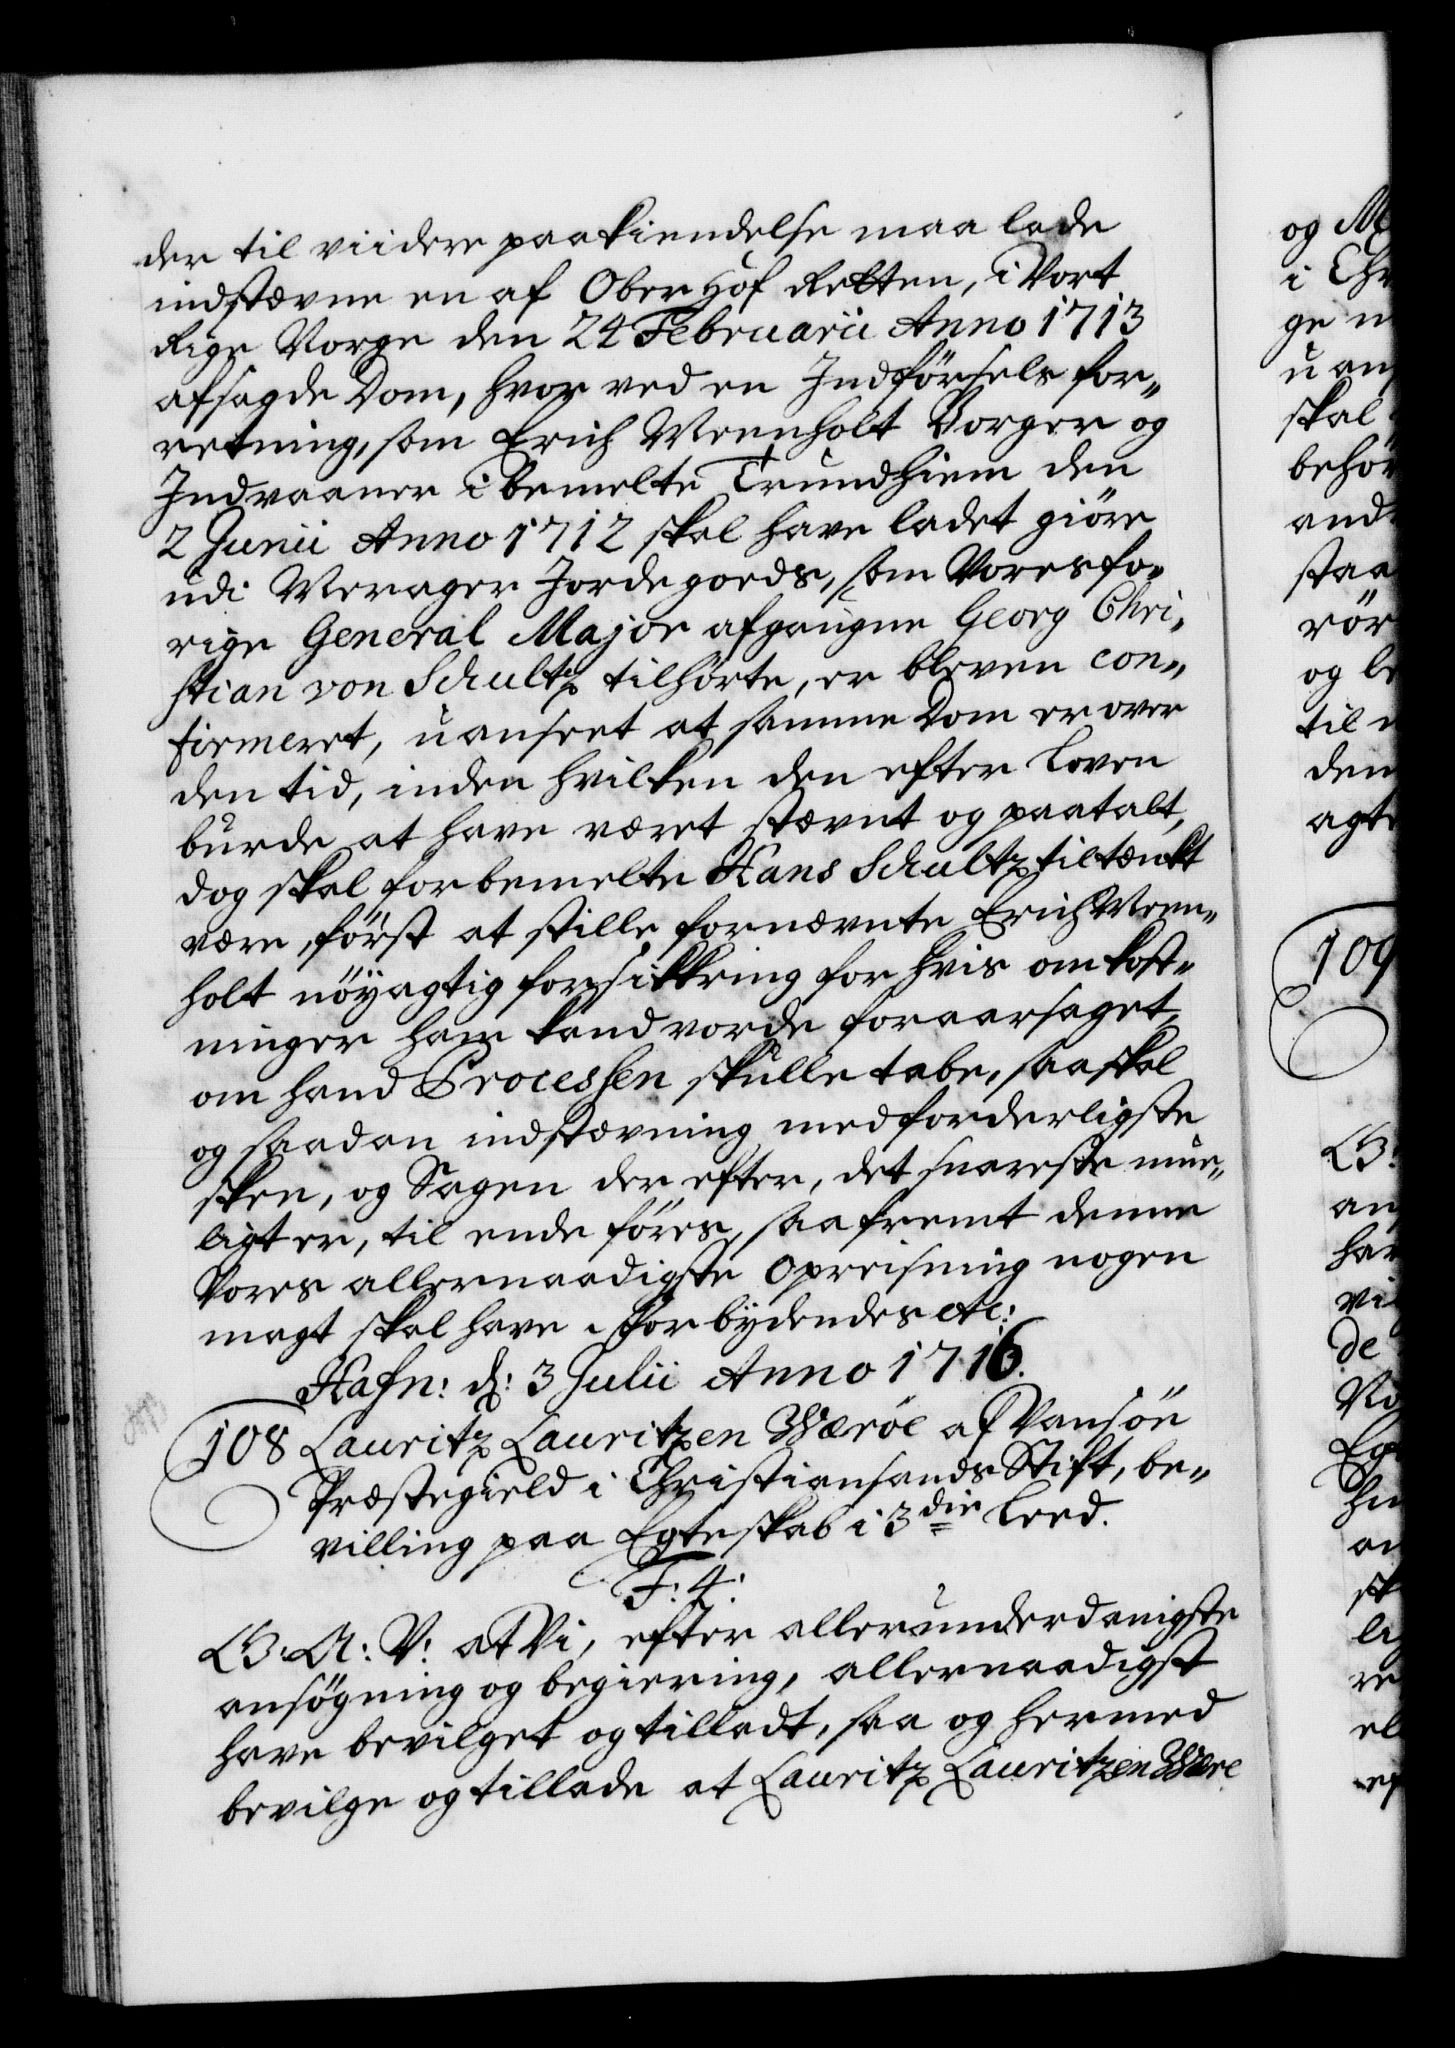 der til viidere paakiendelse maa lade
indstævne en af Ober Hof Retten, i Vort
Rige Norge den 24 Februarii Anno 1713
afsagde Dom, hvor ved en Indførsels for„
retning, som Erich Meenholt Borger og
Indvaaner i bemelte Trundhiem den
2 Junii Anno 1712 skal have ladet giøre
udi Meragers Jordegoeds, som Vores fo„
rige General Major afgangne Georg Chri„
stian von Schultz tilhørte, er bleven con„
firmeret, uanseet at samme Dom er over
den tid, inden hvilken den efter Loven
burde at have været stævnt og paatalt,
dog skal forbemelte Hans Schultz tiltænkt
være, først at stille fornævnte Erich Meen„
holt nöyagtig forsikkring for hvis omkost„
ninger ham kand vorde foraarsaget,
om hand Processen skulle tabe, saa skal
og saadan indstævning medforderligste
skee, og Sagen der efter, det snareste mue„
ligt er, til ende føres, saafremt denne
Vores allernaadigste Opreisning nogen
magt skal have. Forbydendes etc:
Hafn: d: 3 Julii Anno 1716.
108 Lauritz Lauritzen Værøe af Vansöe
Præstegield i Christiansands Stift, be„
villing paa Egteskab i 3die Leed.
F: 4:
G: A: V: at Vi, efter allerunderdanigste
ansøgning og begiering, allernaadigst
have bevilget og tilladt, saa og hermed
bevilge og tillade at Lauritz Lauritzen Være
og M
i Chr
ge n
u an
skal
behør
and
staa
rør
og le
til
den
agt
109
G:
an
har
vi
de
No
Eg
hu
an
st
li
re
el
ef